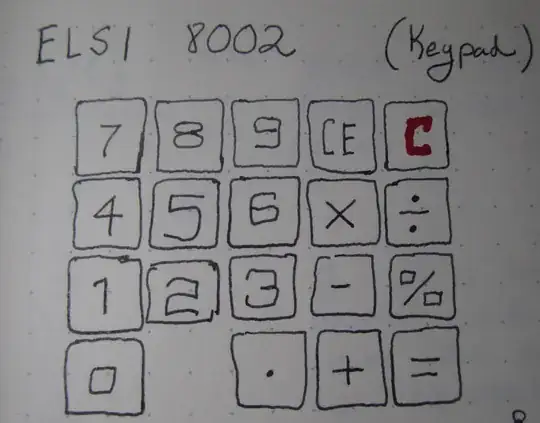 ELSI 8002 (Keypad)
7 8 9 CE C
4 5 6 × ÷
1 2 3 - %
0 . + =